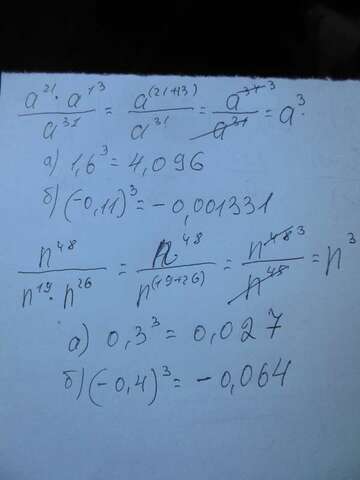 a²¹ · a¹³ / a³¹ = a⁽²¹⁺¹³⁾ / a³¹ = a³⁴ ³ / a³¹ = a³.
а) 1,6³ = 4,096
б) (-0,11)³ = -0,001331
n⁴⁸ / n¹⁹ · n²⁶ = n⁴⁸ / n⁽¹⁹⁺²⁶⁾ = n⁴⁸ ³ / n⁴⁸ = n³
а) 0,3³ = 0,027
б) (-0,4)³ = -0,064